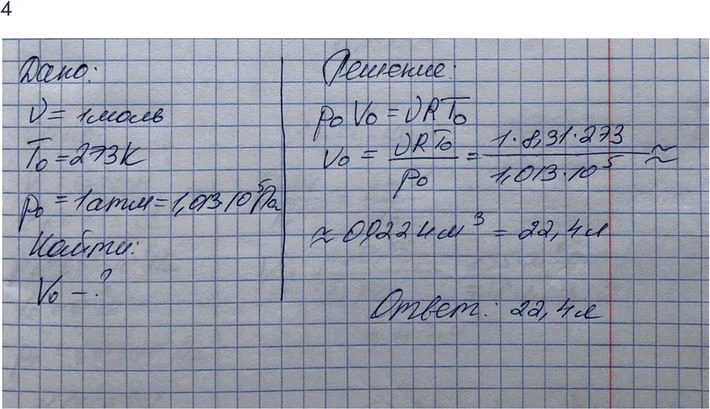 4
Дано:
ν = 1моль
T₀ = 273К
p₀ = 1атм = 1,013·10⁵Па
Найти:
V₀ - ?
Решение:
p₀ V₀ = νRT₀
V₀ = νRT₀/p₀ = 1·8,31·273/1,013·10⁵ ≈
≈ 0,0224м³ = 22,4л
Ответ: 22,4л